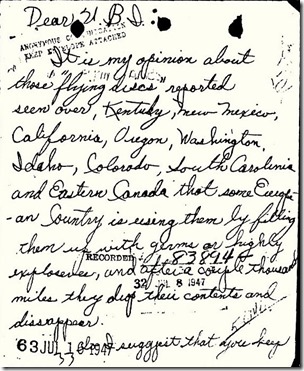 Dear F.B.I:
ANONYMOUS COMMUNICATION
KEEP ENVELOPE ATTACHED
It is my opinion about
those "flying discs" reported
seen over, Kentuky, new mexico,
California, Oregon, Washington,
Idaho, Colorodo, South Carolinia
and Eastern Canada that some Europe-
-an Country is using them by filling
them up with germs or highly
RECORDED
83894
explosives, and after a couple thousand
32 JUL 8 1947
miles they drop their contents and
dissappear.
63 JUL 1 1947
I suggest that you keep